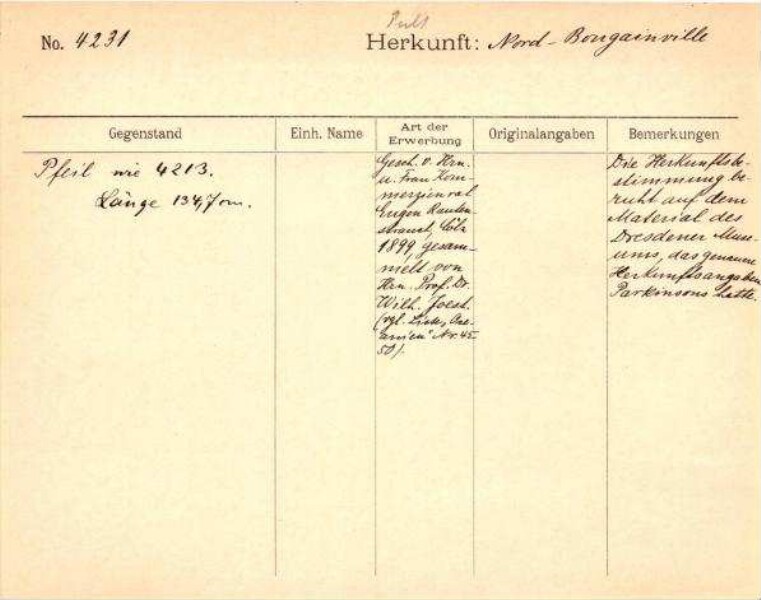 Pult
No. 4231
Herkunft: Nord-Bougainville
Gegenstand
Einh. Name
Art der
Erwerbung
Originalangaben
Bemerkungen
Pfeil wie 4213.
Länge 134,7 cm.
Gesch. v. Hrn.
u. Frau Kom-
merzienrat
Eugen Rauten-
strauch, Cöln
1899, gesam-
melt von
Hrn. Prof. Dr.
Wilh. Joest.
(vgl. Liste „Oze-
anien" Nr. 45-
50/.
Die Herkunftsbe-
stimmung be-
ruht auf dem
Material des
Dresdener Muse-
ums, das genauere
Herkunftsangaben
Parkinsons hatte.